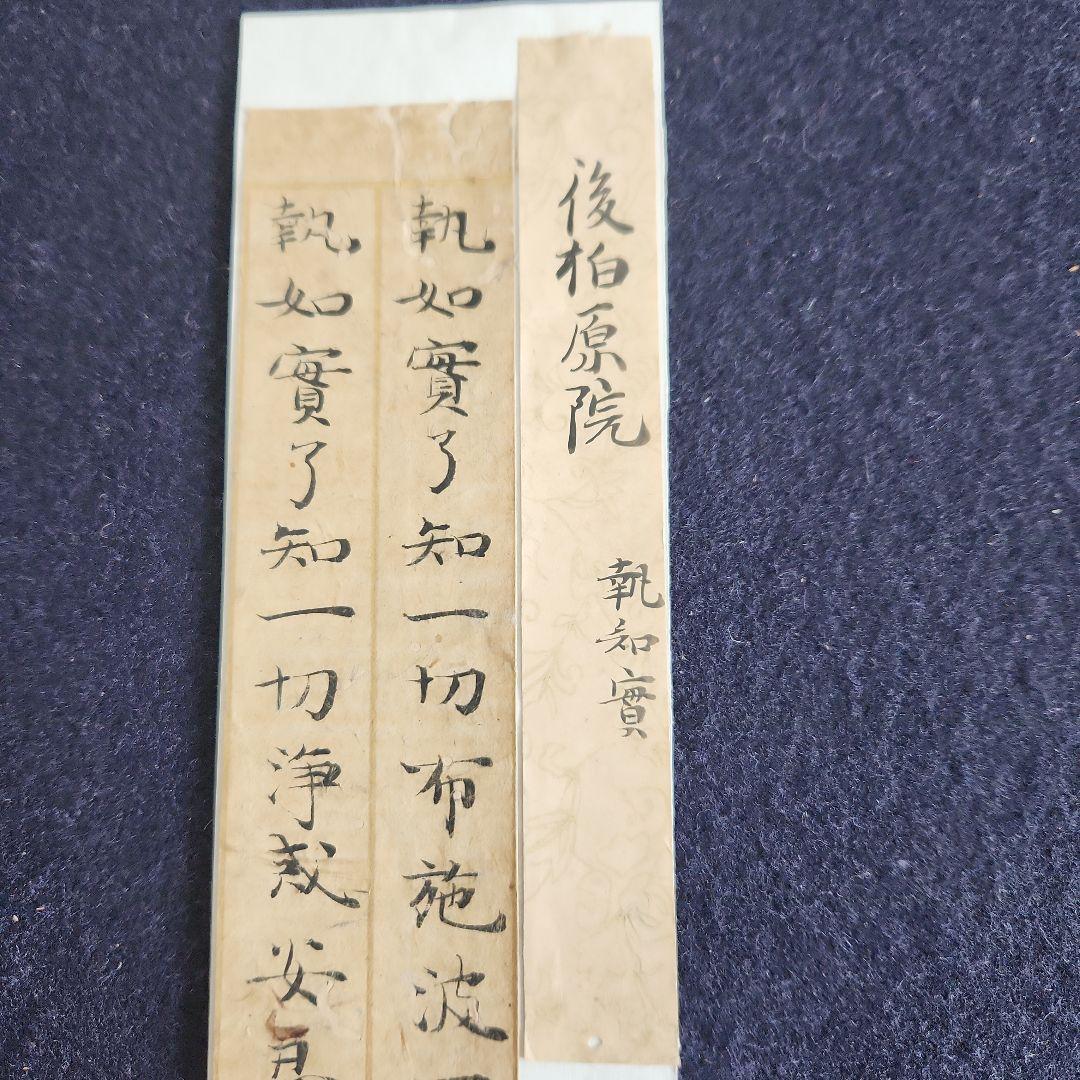 後柏原院
執知實
執如實了知一切布施波
執如實了知一切淨戒安忍